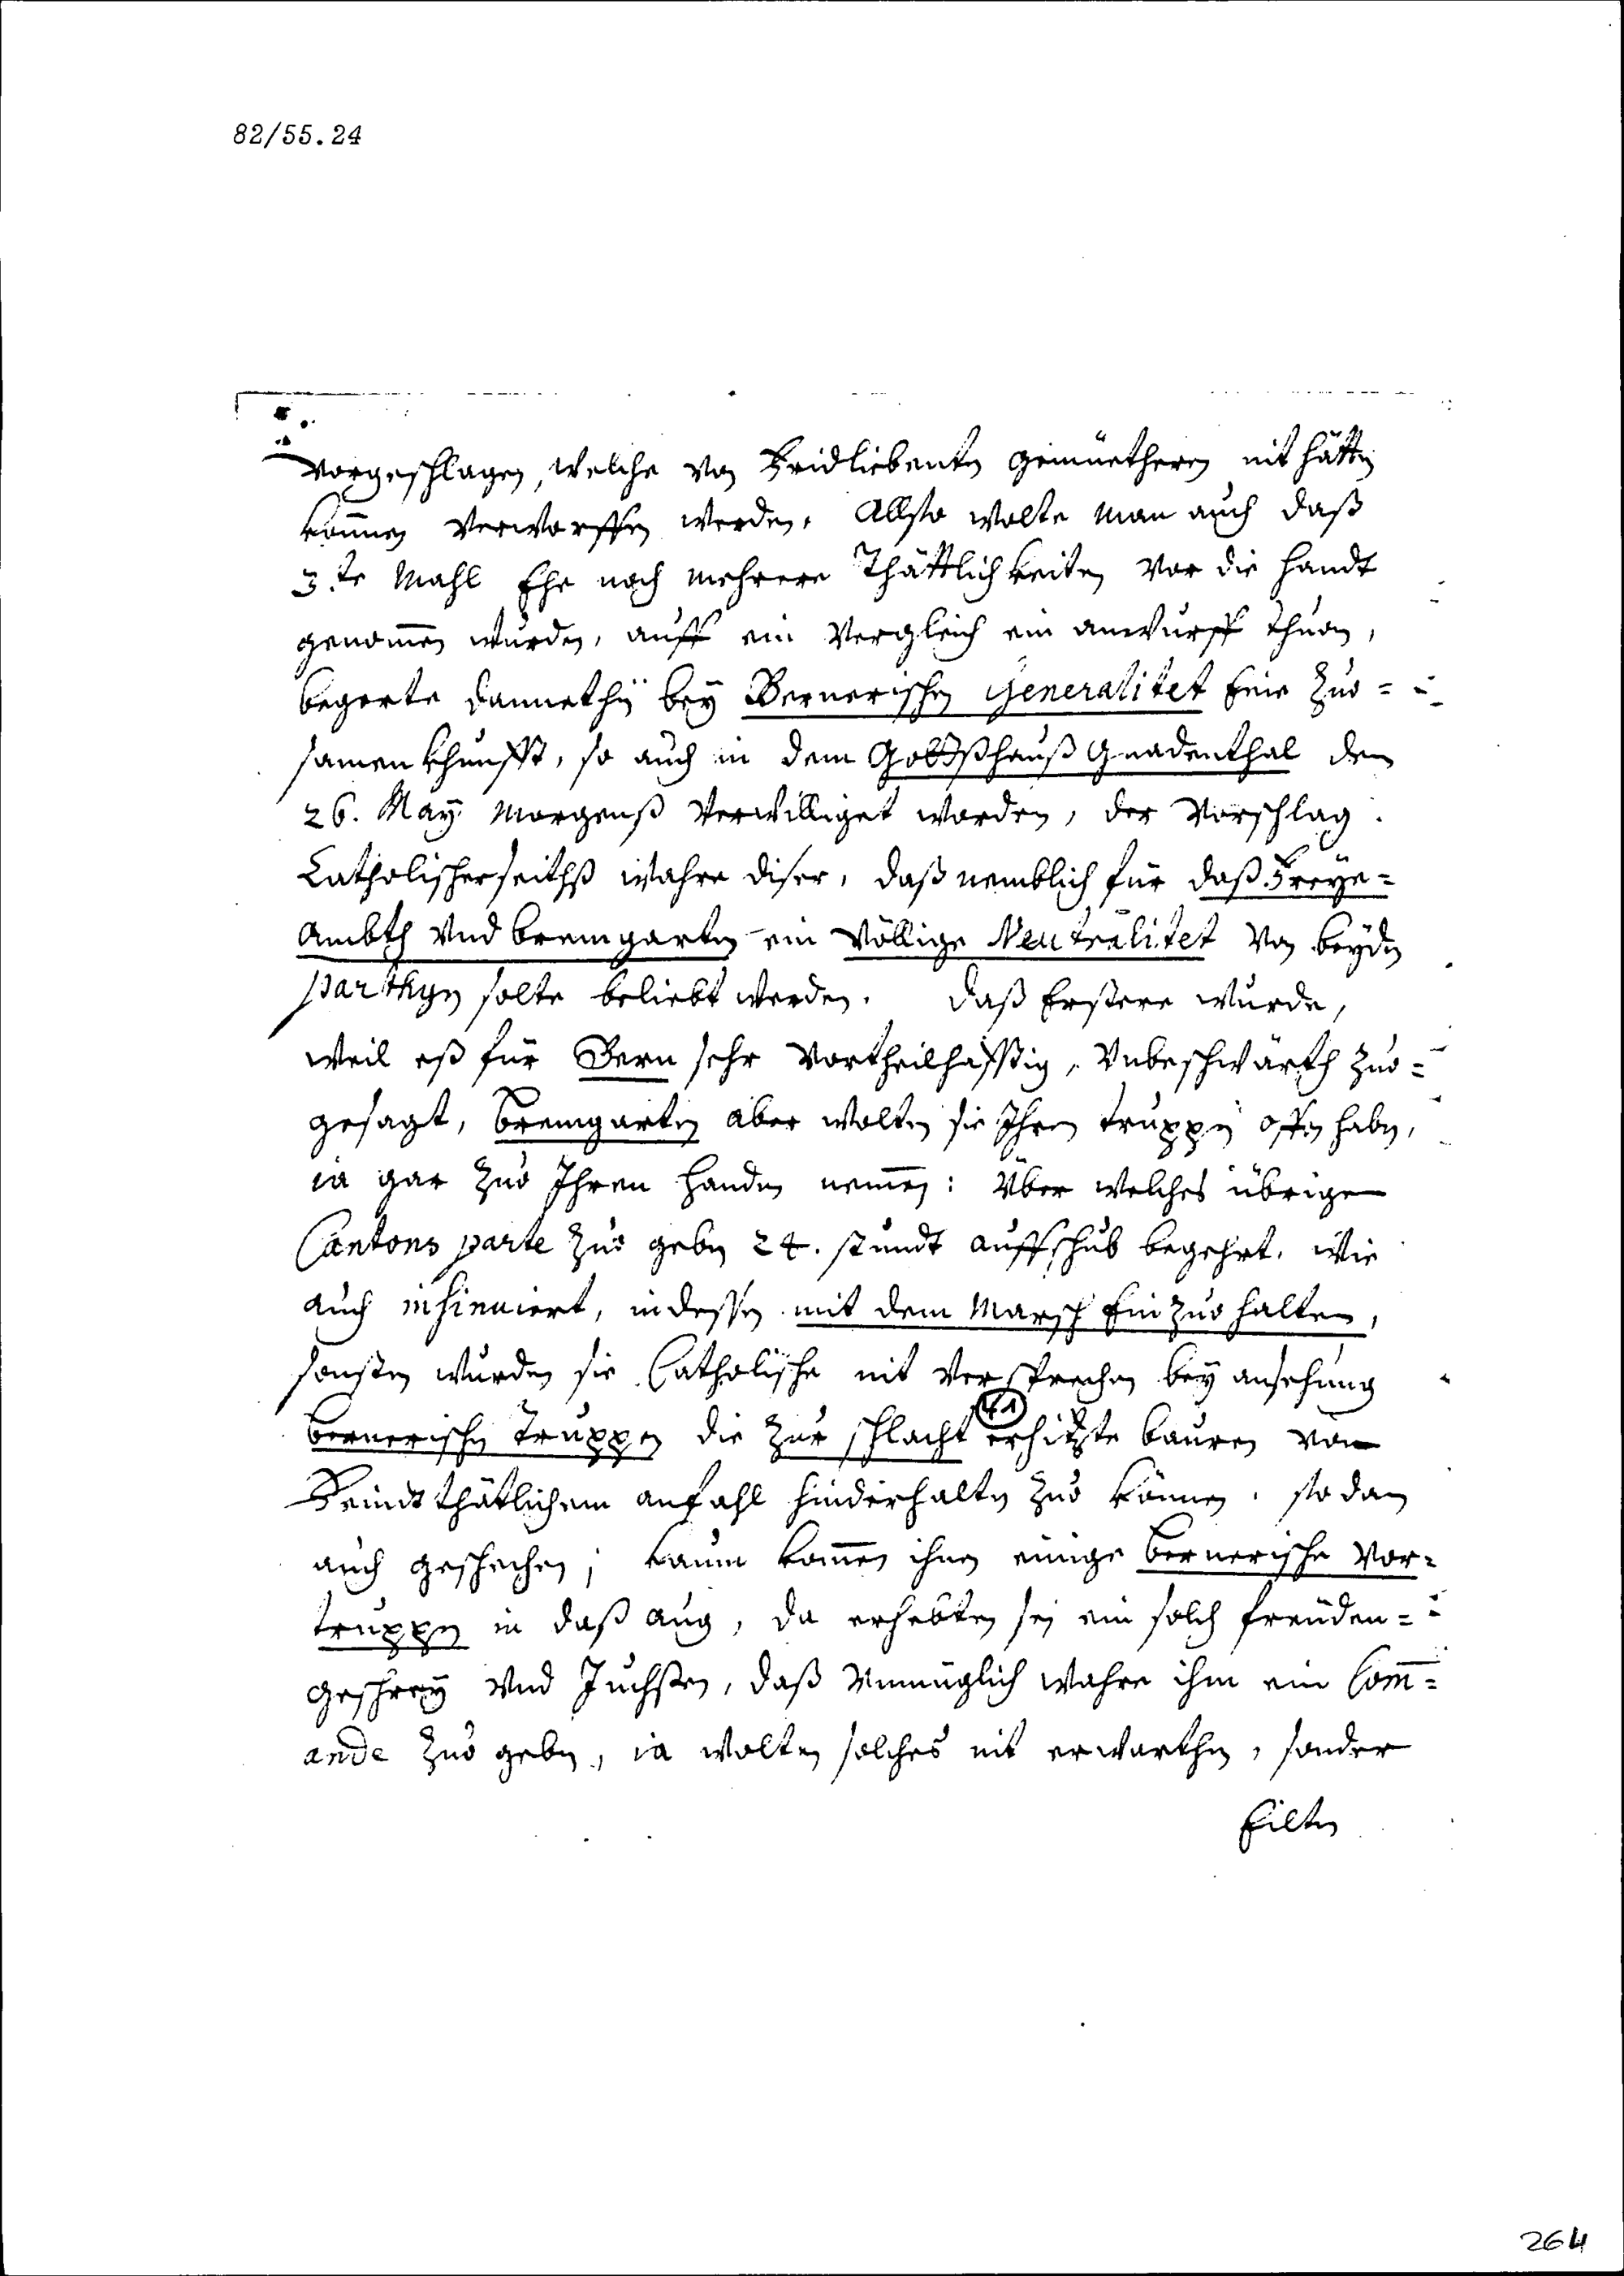 82/55.24
vorgeschlagen, welche von Fridliebenten gemüetheren nit hätten
können verworffen werden. Allso wolte man auch daß
3.te Mahl Ehe noch mehrere Thättlichkeiten vor die handt
genommen wurden, auff ein Vergleich ein anwurff thuon,
begerte dannethin bey Bernerischen Generalitet Eine Zuo=
samenkhunfft, so auch in dem Gottßhauß Gnadenthal den
26. May morgenß verwilliget worden, der Vorschlag
Catholischerseithß wahre diser, daß nemblich für daß Freye=
Ambth und bremgarten ein völlige Neutralitet von beyden
parthyen solte beliebt werden. daß Erstere wurde,
weil eß für Bern sehr vortheilhafftig, unbeschwärth zuo=
gesagt, bremgarten aber wolten sie Ihren truppen offen haben,
ia gar zuo Ihren handen nemmen: Über welches übrigen
Cantons parte zuo geben 24. stundt auffschub begehrt, wie
auch insinuiert, indessen mit dem Marsch Ein zuo halten,
sonsten wurden sie Catholische nit versprechen bey ansehung
bernerischen truppen die zur schlacht erhitzte bauren vom
41
Feindtthätlichem anfahl hinderhalten zuo können. so dan
auch geschechen; kaum kommen ihnen einige bernerische Vor=
truppen in daß aug, da erhebten sei ein solch freüden=
geschrey und Juchsen, daß unmüglich wahre ihm ein Comm=
ande zuo geben, ia wolten solches nit erwarthen, sonder
Eilten
264